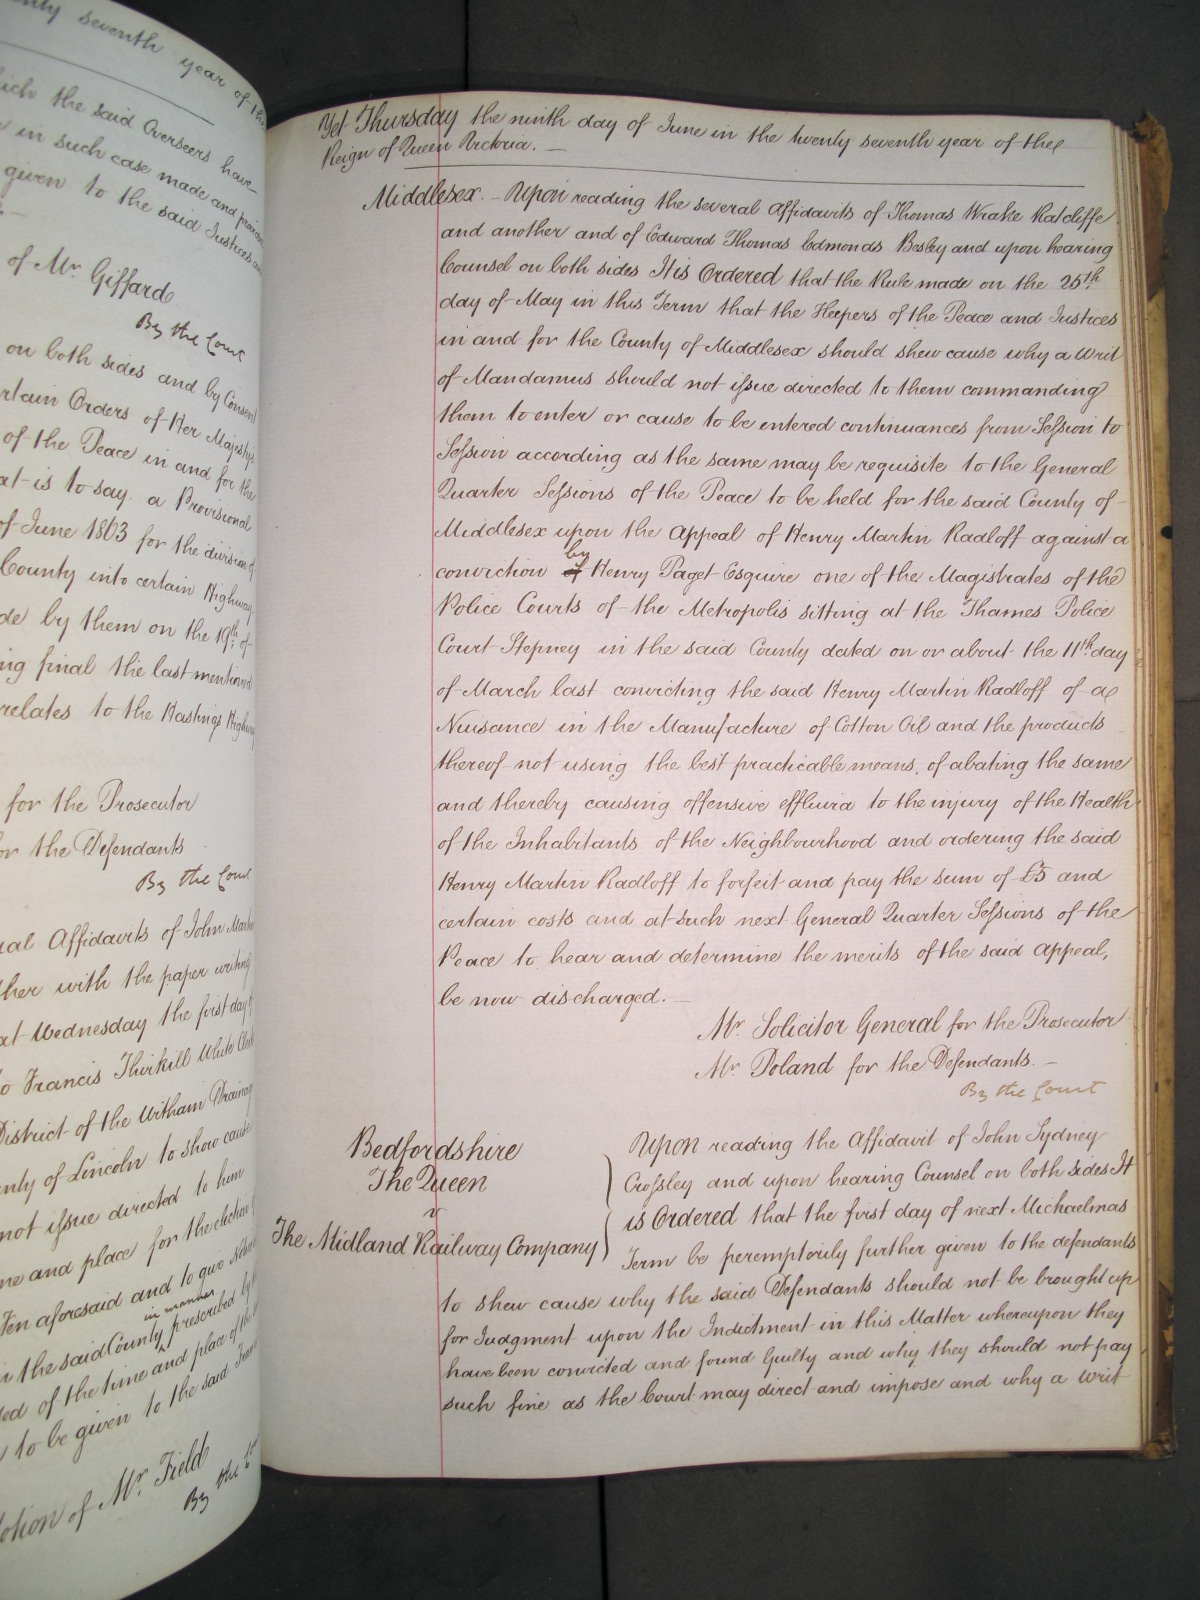 enty seventh year of the
which the said Overseers have
in such case made and
given to the said Justices
of Mr. Giffard
By the Court
on both sides and by Consent
Orders of Her Majestys
of the Peace in and for the
at is to say a Provisional
of June 1863 for the division of
County into certain Highway
de by them on the 19th of
ing final the last mentioned
relates to the Hastings High
for the Prosecutor
or the Defendants
By the Court
Affidavits of John
ther with the paper writing
at Wednesday the first day
to Francis Thirkill White
District of the Witham Drainage
nty of Lincoln to show cause
not issue directed to him
me and place for the election
Ten aforesaid and to give
in manner
the said County prescribed by
of the time and place of
to be given to the said
otion of Mr. Field
By the
Yet Thursday the ninth day of June in the twenty seventh year of the
Reign of Queen Victoria. —
Middlesex. – Upon reading the several Affidavits of Thomas Wrake Ratcliffe
and another and of Edward Thomas Edmonds Besley and upon hearing
Counsel on both sides It is Ordered that the Rule made on the 25th
day of May in this Term that the Keepers of the Peace and Justices
in and for the County of Middlesex should shew cause why a Writ
of Mandamus should not issue directed to them commanding
them to enter or cause to be entered continuances from Session to
Session according as the same may be requisite to the General
Quarter Sessions of the Peace to be held for the said County of
Middlesex upon the Appeal of Henry Martin Radloff against a
by
conviction of Henry Paget Esquire one of the Magistrates of the
Police Courts of the Metropolis sitting at the Thames Police
Court Stepney in the said County dated on or about the 11th day
of March last convicting the said Henry Martin Radloff of a
Nuisance in the Manufacture of Cotton Oil and the products
thereof not using the best practicable means, of abating the same
and thereby causing offensive effluvia to the injury of the Health
of the Inhabitants of the Neighbourhood and ordering the said
Henry Martin Radloff to forfeit and pay the sum of £5 and
certain costs and at such next General Quarter Sessions of the
Peace to hear and determine the merits of the said Appeal,
be now discharged. —
Mr. Solicitor General for the Prosecutor
Mr Poland for the Defendants. —
By the Court
Bedfordshire
The Queen
v
The Midland Railway Company
Upon reading the Affidavit of John Sydney
Crossley and upon hearing Counsel on both sides It
is Ordered that the first day of next Michaelmas
Term be peremptorily further given to the defendants
to shew cause why the said Defendants should not be brought up
for Judgment upon the Indictment in this Matter whereupon they
have been convicted and found Guilty and why they should not pay
such fine as the Court may direct and impose and why a Writ